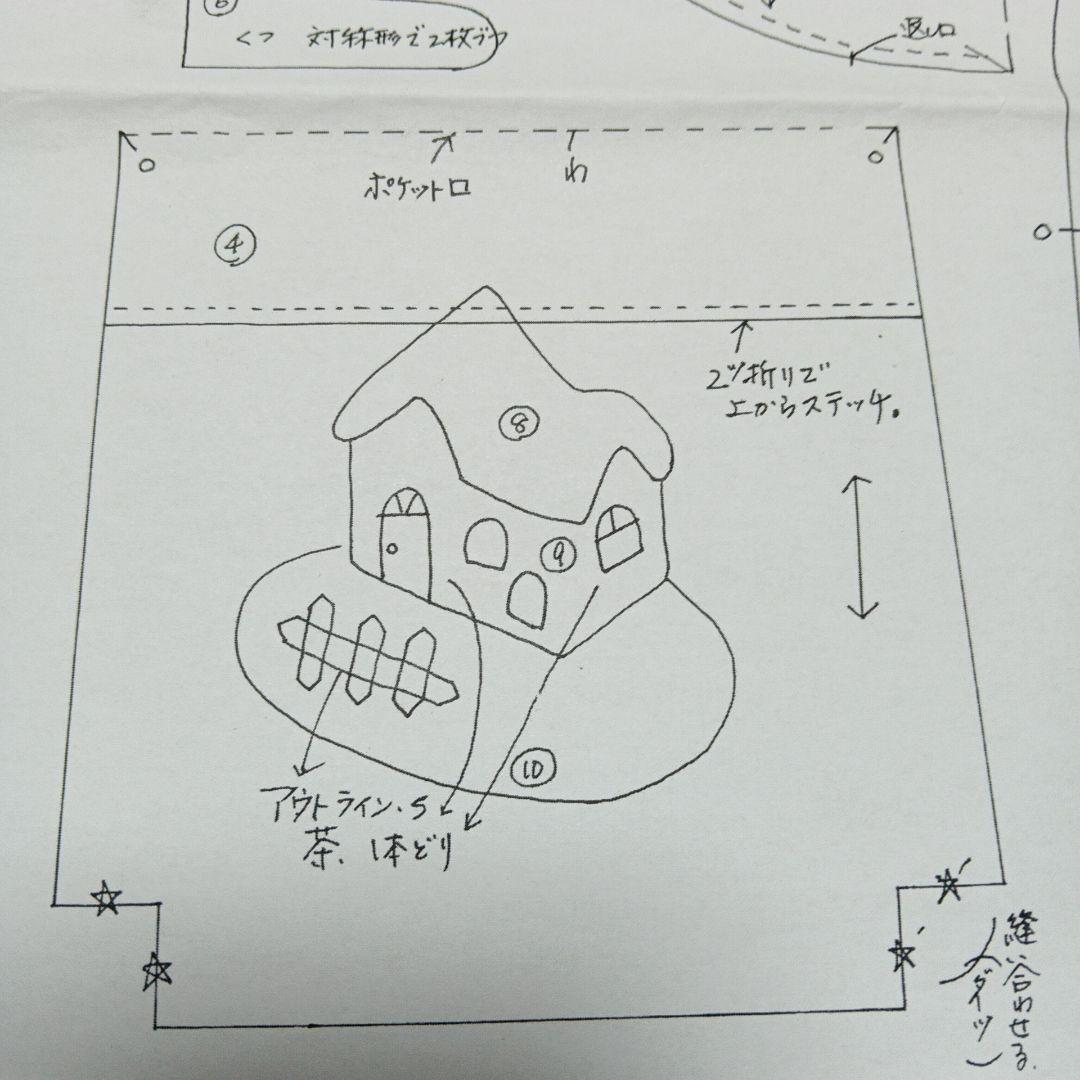 ⑥
くつ 対称形で2枚づつ
返し口
ポケット口
わ
④
2ツ折りで
上からステッチ。
⑧
⑨
⑩
アウトライン.S
茶、1本どり
縫い合わせる。